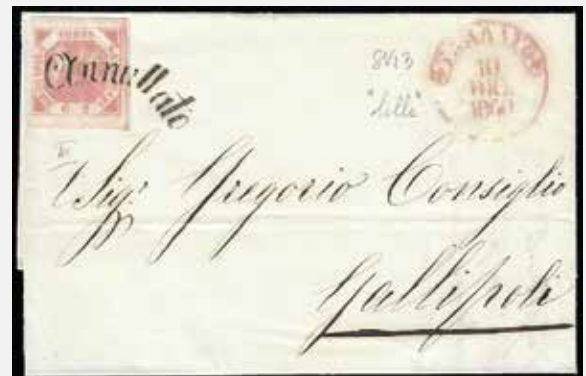 Annullato
8123
"lilli"
10
DIC.
1860
Sig.r Gregorio Consiglio
Gallipoli